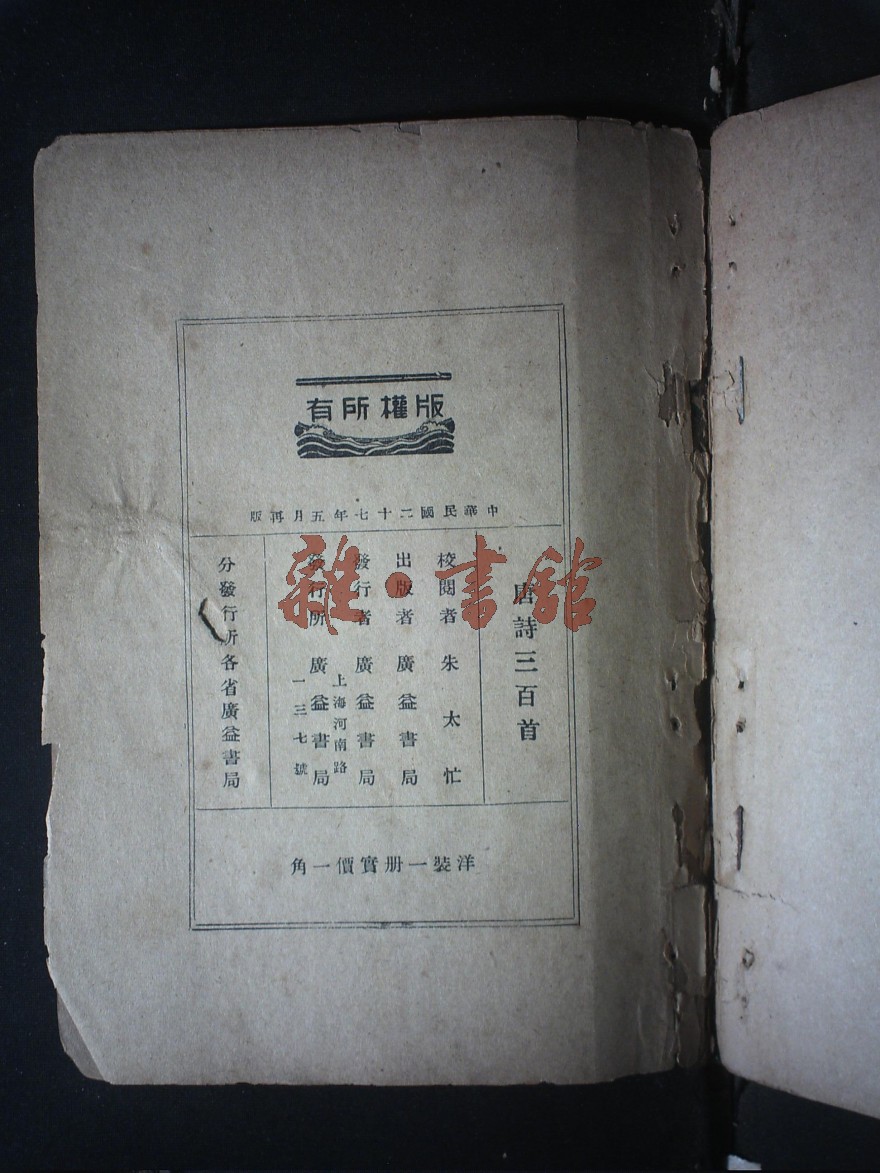 版權所有
中華民國二十七年五月再版
唐詩三百首
校閱者 朱太忙
出版者 廣益書局
發行者 廣益書局
上海河南路
發行所 廣益書局
一三七號
分發行所各省廣益書局
洋裝一册實價一角
雜·書館